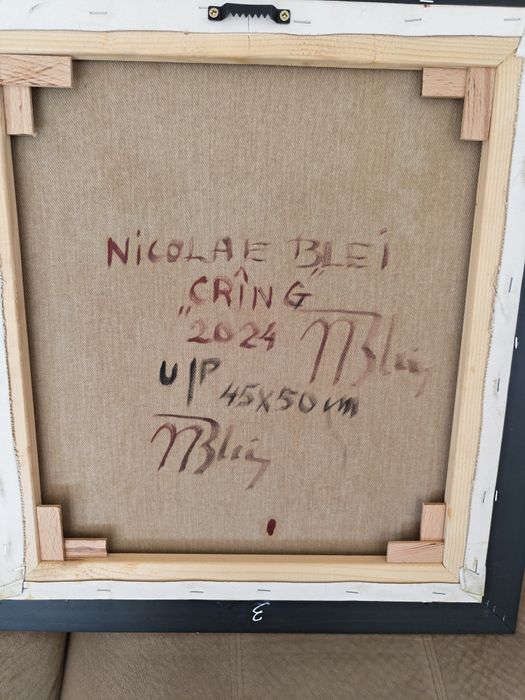 NICOLAE BLEI
„CRÎNG”
2024 NBlei
U/P 45X50 cm
NBlei
3